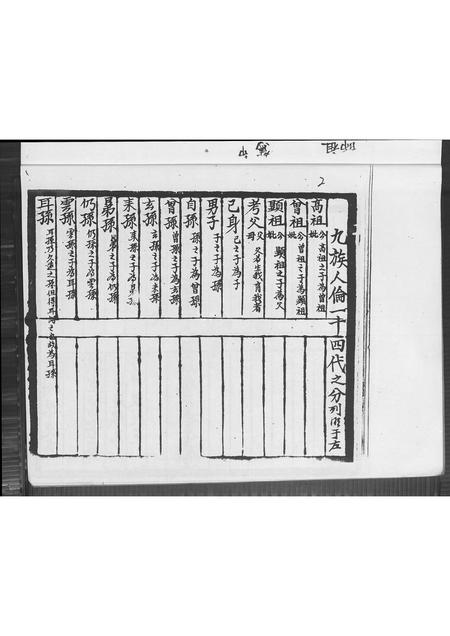 2
九族人倫一十四代之分列後于左
高祖 分妣 高祖之子為曾祖
曾祖 分妣 曾祖之子為顯祖
顯祖 分妣 顯祖之子為父
考父 父母 父母生我育我者
己身 己之子為子
男子 子之子為孫
自孫 孫之子為曾孫
曾孫 曾孫之子為玄孫
玄孫 玄孫之子為來孫
來孫 來孫之子為
晜孫 之子為仍孫
仍孫 仍孫之子為雲孫
雲孫 雲孫之子為耳孫
耳孫 耳孫乃久遠之孫但得耳聞之也故為耳孫